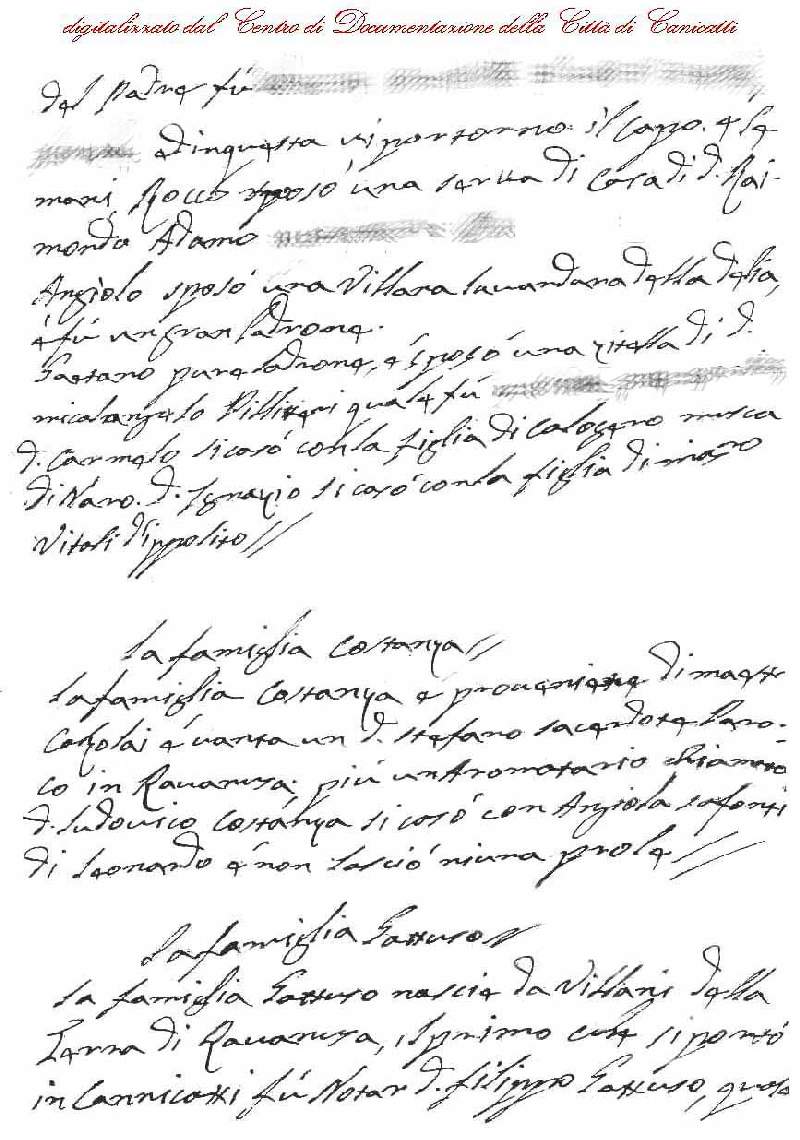 digitalizzato dal Centro di Documentazione della Città di Canicattì
del Padre fù
d'inquesta vi portorno il Capo. e le
mani, Rocco sposò una servta di Casa di d. Rai-
mondo Adamo
Angiolo sposò una Villana lavandara della delia,
e fù un gran ladrone.
Gaetano pure ladrone, e sposò una zitella di d.
micalangelo Pillitteri quale fù
d. Carmelo si casò con la figlia di Calogero musca
di Naro. d. Ignazio si casò con la figlia di
Vitali d'ippolito//
La famiglia Costanza//
La famiglia Costanza è proveniente di mastri
è vanta un d. stefano sacerdote Paro-
co in Ravanusa; più un Aromatario chiamato
d. Ludovico Costanza si casò con Angiola safonti
di Leonardo e non lasciò niuna prole//
La famiglia Gattuso//
La famiglia Gattuso nascie da Villani della
Terra di Ravanusa, il primo che si portò
in Cannicatti fù Notar d. filippo Gattuso, quale